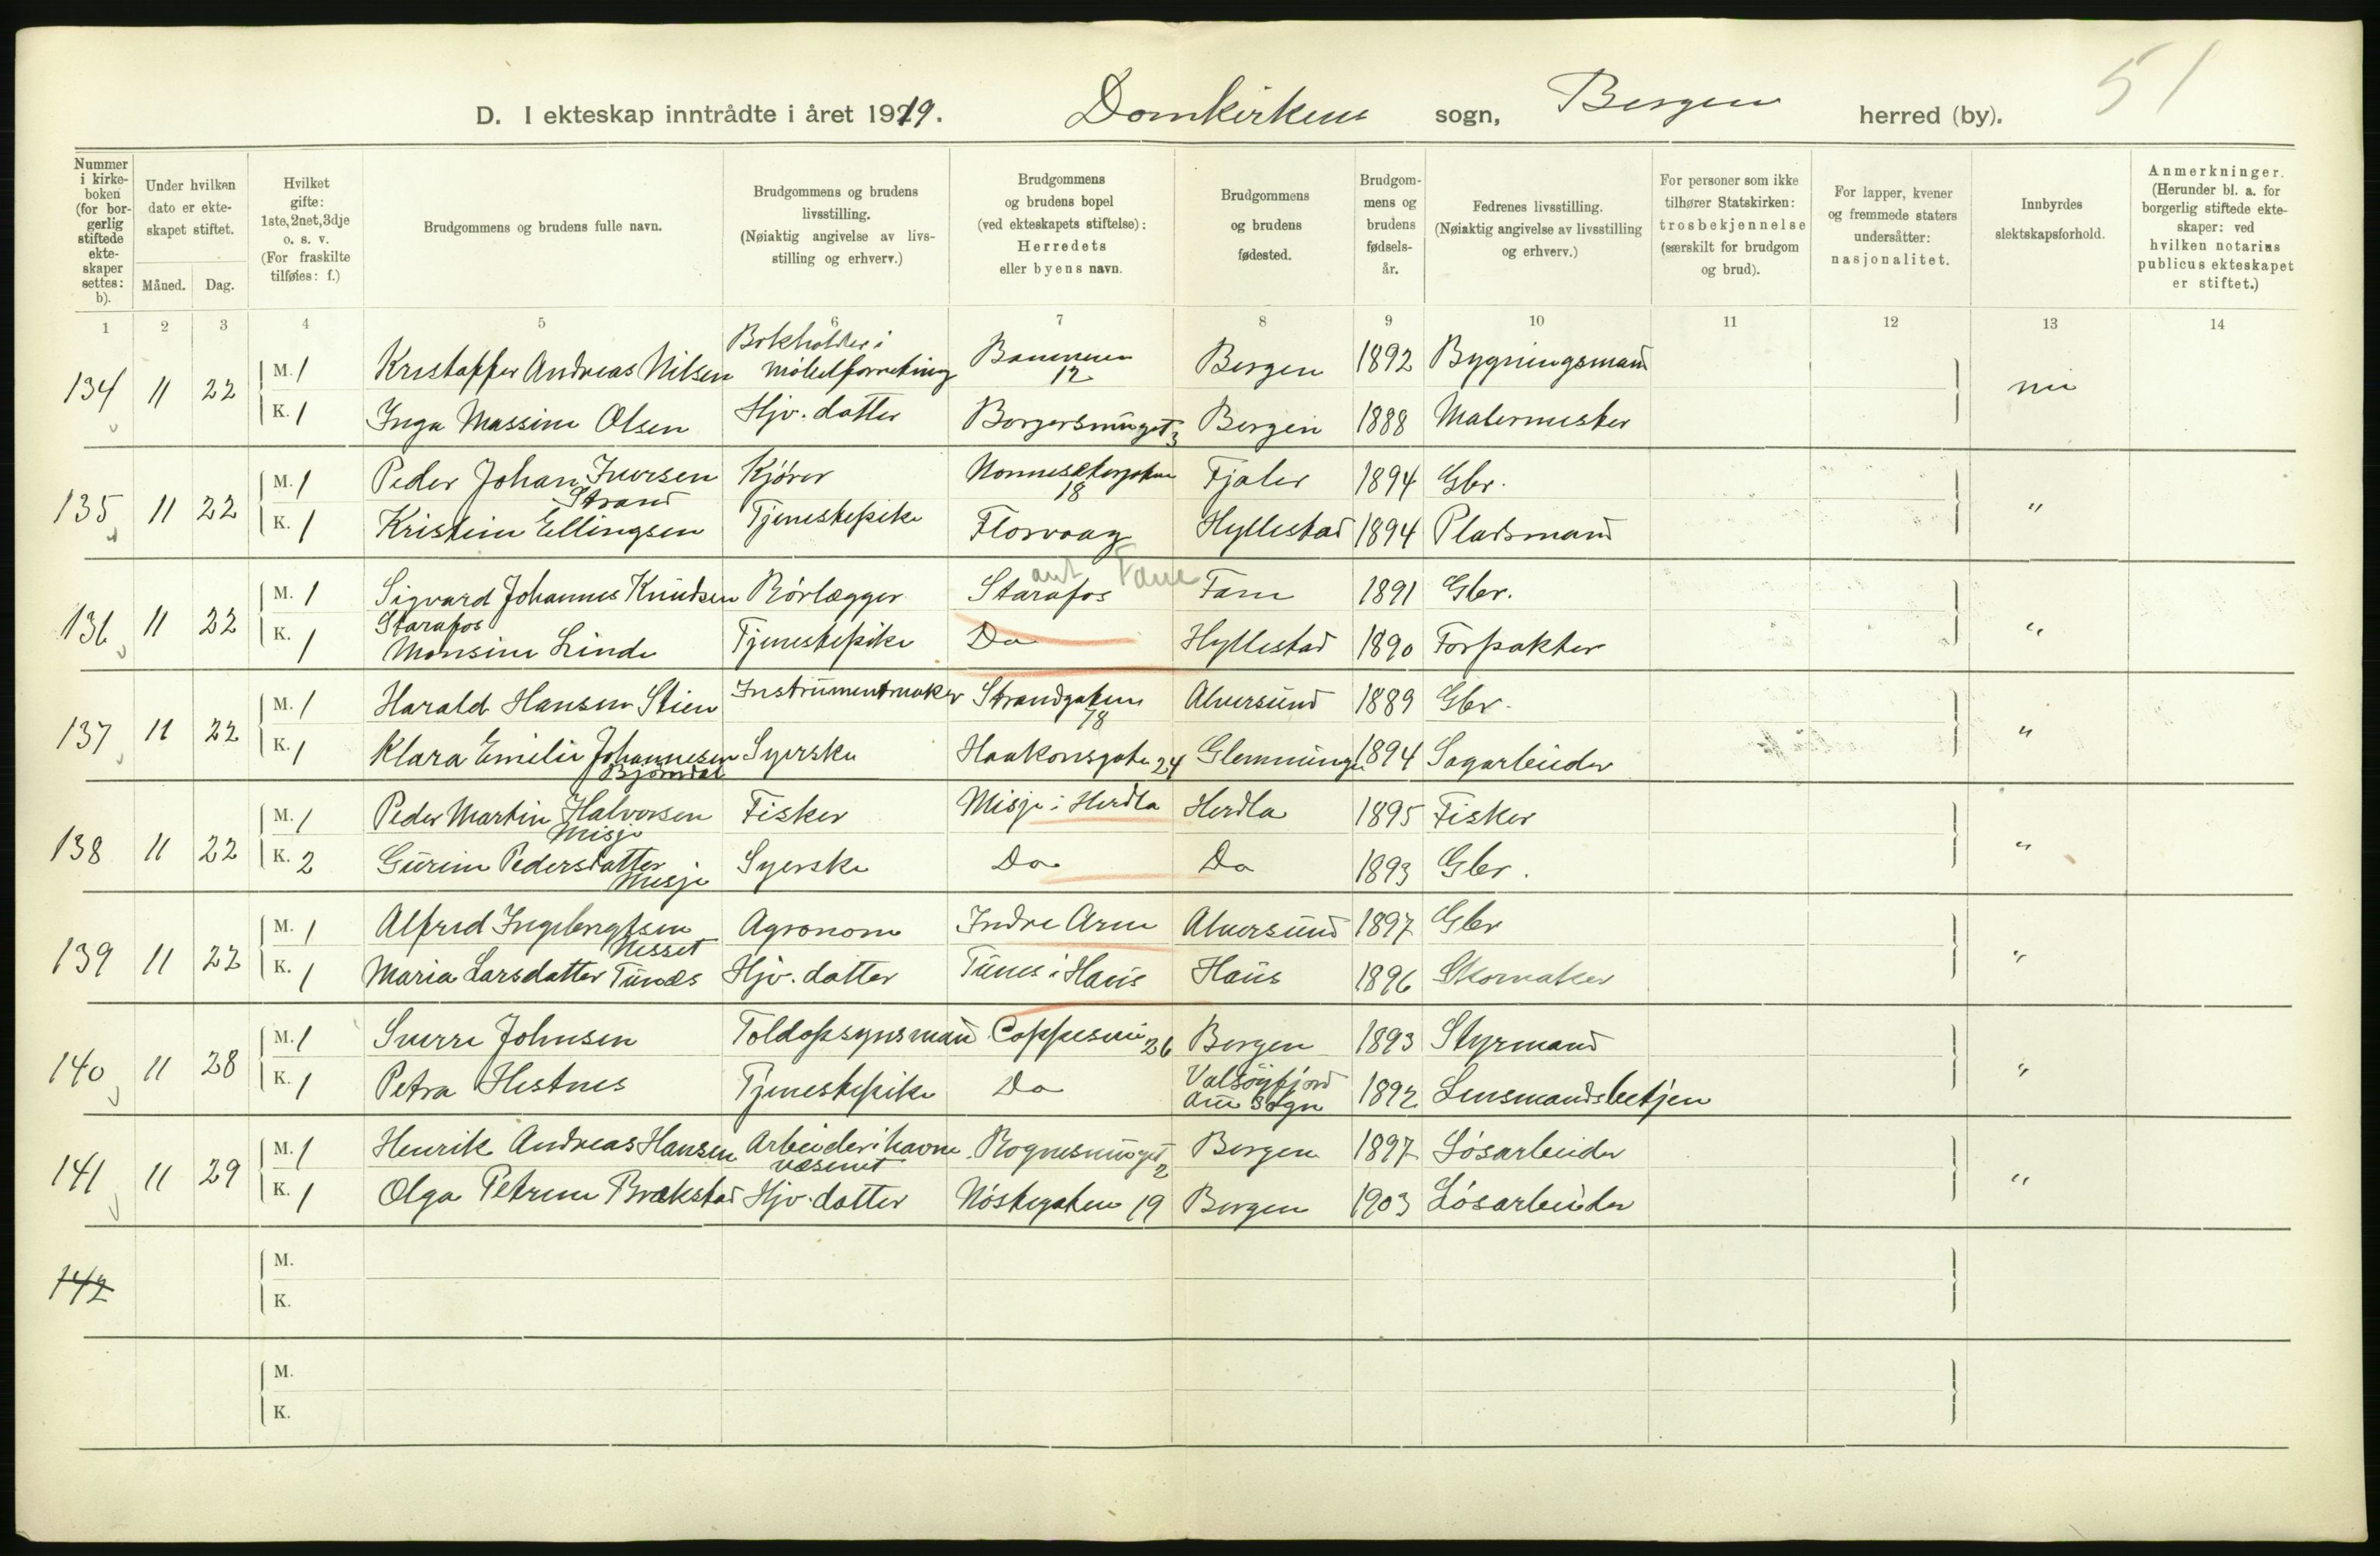 51
D. I ekteskap inntrådte i året 1919. Domkirkens sogn, Bergen herred (by).
Nummer i kirke-boken (for bor-gerlig stiftede ekte-skaper settes: b).
Under hvilken dato er ekte-skapet stiftet.
Måned. Dag.
Hvilket gifte: 1ste, 2net, 3dje o. s. v. (For fraskilte tilføies: f.)
Brudgommens og brudens fulle navn.
Brudgommens og brudens livsstilling. (Nøiaktig angivelse av livs-stilling og erhverv.)
Brudgommens og brudens bopel (ved ekteskapets stiftelse): Herredets eller byens navn.
Brudgommens og brudens fødested.
Brudgom-mens og brudens fødsels-år.
Fedrenes livsstilling. (Nøiaktig angivelse av livsstilling og erhverv.)
For personer som ikke tilhører Statskirken: trosbekjennelse (særskilt for brudgom og brud).
For lapper, kvener og fremmede staters undersåtter: nasjonalitet.
Innbyrdes slektskapsforhold.
Anmerkninger. (Herunder bl. a. for borgerlig stiftede ekte-skaper: ved hvilken notarius publicus ekteskapet er stiftet.)
1 2 3 4 5 6 7 8 9 10 11 12 13 14
134 11 22 M. 1 Kristoffer Andreas Nilsen Bokholder i møbelforretning 12 Bergen 1892 Bygningsmand nei
K. 1 Inga Massine Olsen Hjv. datter Borgersmuget 3 Bergen 1888 Malermester
135 11 22 M. 1 Peder Johan Iversen Strand Kjører Nonnesetergaten 18 Fjaler 1894 Gbr. "
K. 1 Kristine Ellingsen Tjenestepike Florvaag Hyllestad 1894 Pladsmand
136 11 22 M. 1 Sigvard Johannes Knudsen Starafos Rørlægger Starafos ant Fane Fane 1891 Gbr. "
K. 1 Monsine Linde Tjenestepike Do Hyllestad 1890 Forpakter
137 11 22 M. 1 Harald Hansen Stien Instrumentmaker Strandgaten 78 Alversund 1889 Gbr. "
K. 1 Klara Emilie Johannesen Bjørndal Syerske Haakonsgate 24 Glemminge 1894 Sagarbeider
138 11 22 M. 1 Peder Martin Halvorsen Misje Fisker Misje i Herdla Herdla 1895 Fisker "
K. 2 Gurine Pedersdatter Misje Syerske Do Do 1893 Gbr.
139 11 22 M. 1 Alfred Ingebrigtsen Nesset Agronom Indre Arne Alversund 1897 Gbr "
K. 1 Maria Larsdatter Tunæs Hjv. datter Tunes i Haus Haus 1896 Skomaker
140 11 28 M. 1 Sverre Johnsen Toldopsynsmand 26 Bergen 1893 Styrmand "
K. 1 Petra Hestnes Tjenestepike Do Valsøyfjord 1892 Lensmandsbetjen
141 11 29 M. 1 Henrik Andreas Hansen Arbeider i havnevæsenet Rognesmuget 2 Bergen 1897 Løsarbeider "
K. 1 Olga Petrine Brækstad Hjv. datter Nøstegaten 19 Bergen 1903 Løsarbeider
142 M.
K.
M.
K.